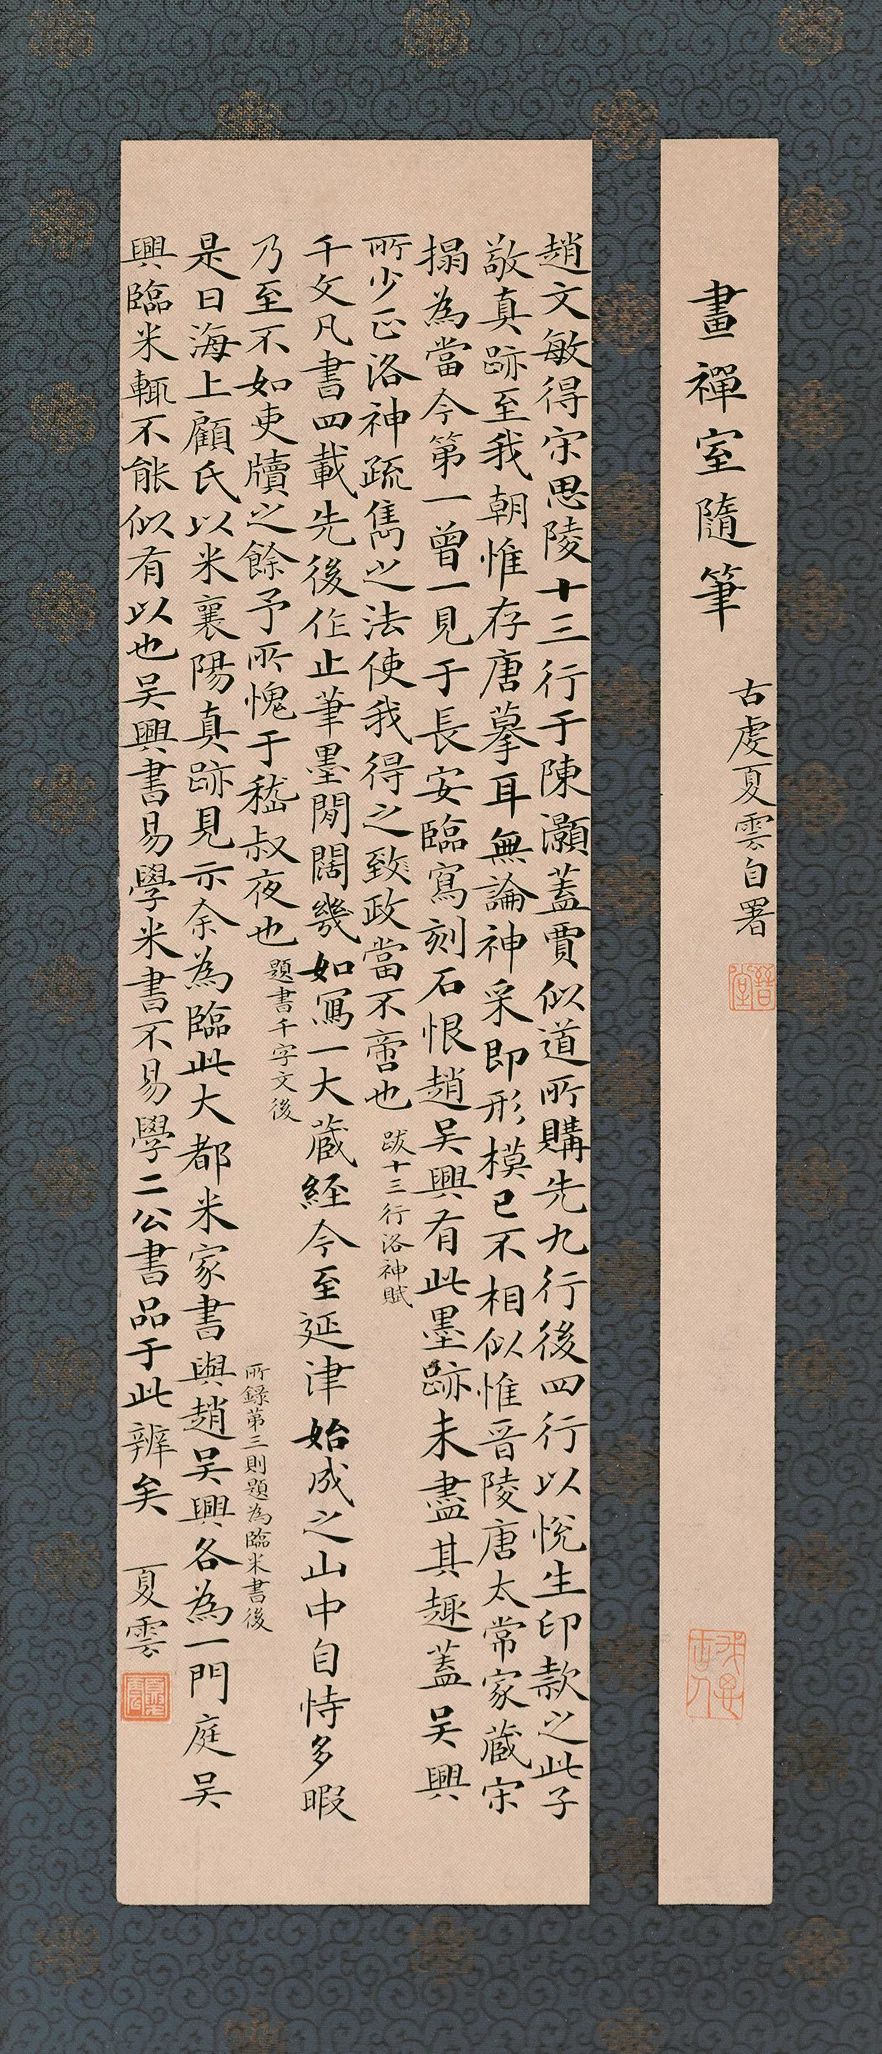 畫禪室隨筆
古虔夏雲自署
趙文敏得宋思陵十三行于陳灝蓋賈似道所購先九行後四行以悅生印款之此子
敬真跡至我朝惟存唐摹耳無論神采即形模已不相似惟晉陵唐太常家藏宋
搨為當今第一曾一見于長安臨寫刻石恨趙吳興有此墨跡未盡其趣蓋吳興
所少正洛神疏雋之法使我得之致政當不啻也
跋十三行洛神賦
千文凡書四載先後作止筆墨閒闊幾如寫一大藏經今至延津始成之山中自恃多暇
乃至不如吏牘之餘予所愧于嵇叔夜也
題書千字文後
所錄第三則題為臨米書後
是日海上顧氏以米襄陽真跡見示余為臨此大都米家書與趙吳興各為一門庭吳
興臨米輒不能似有以也吳興書易學米書不易學二公書品于此辨矣
夏雲